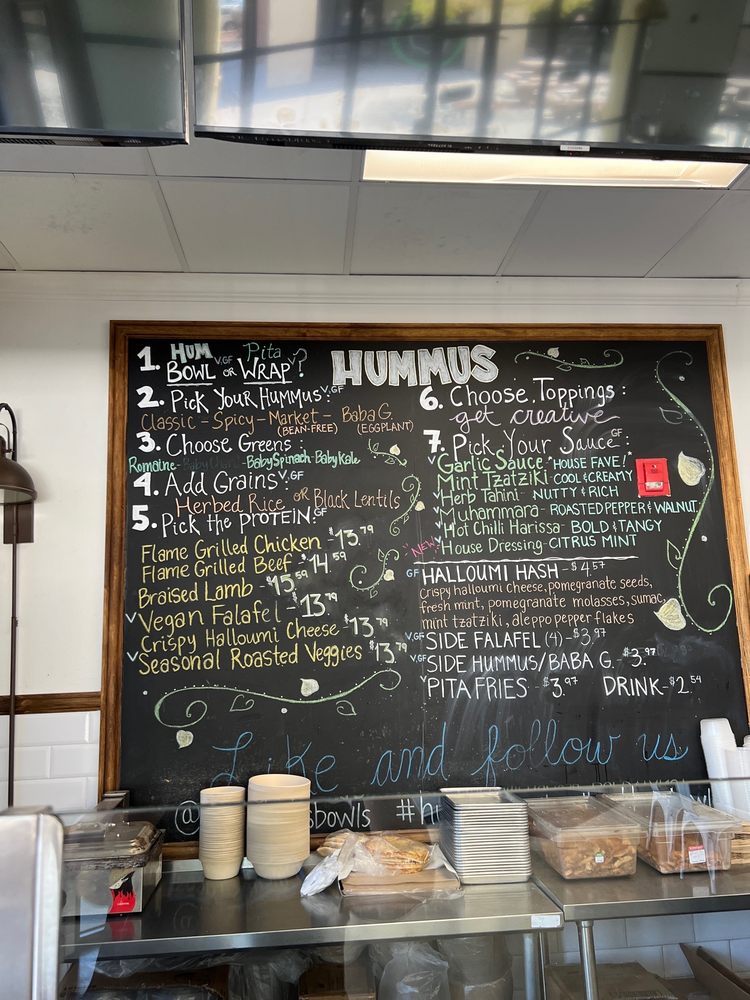 HUMMUS
1. HUM V.GF Pita V
BOWL OR WRAP?
2. Pick Your Hummus: V.GF
Classic - Spicy - Market - Baba G.
(BEAN-FREE) (EGGPLANT)
3. Choose Greens:
Romaine - Baby Spinach - Baby Kale
4. Add Grains V.GF
Herbed Rice OR Black Lentils
5. Pick the Protein: GF
Flame Grilled Chicken - $13.79
Flame Grilled Beef - $14.59
Braised Lamb - $15.59
V Vegan Falafel - $13.79
Crispy Halloumi Cheese - $13.79
V Seasonal Roasted Veggies $13.79
6. Choose Toppings:
get creative
7. Pick Your Sauce: GF
V Garlic Sauce "HOUSE FAVE!"
Mint Tzatziki COOL & CREAMY
V Herb Tahini - NUTTY & RICH
V Muhammara - ROASTED PEPPER & WALNUT
V Hot Chilli Harissa - BOLD & TANGY
"NEW" V House Dressing - CITRUS MINT
GF HALLOUMI HASH - $4.57
Crispy halloumi cheese, pomegranate seeds,
fresh mint, pomegranate molasses, sumac,
mint tzatziki, aleppo pepper flakes
V.GF SIDE FALAFEL (4) - $3.97
V.GF SIDE HUMMUS/BABA G. $3.97
V PITA FRIES - $3.97 DRINK - $2.54
Like and follow us